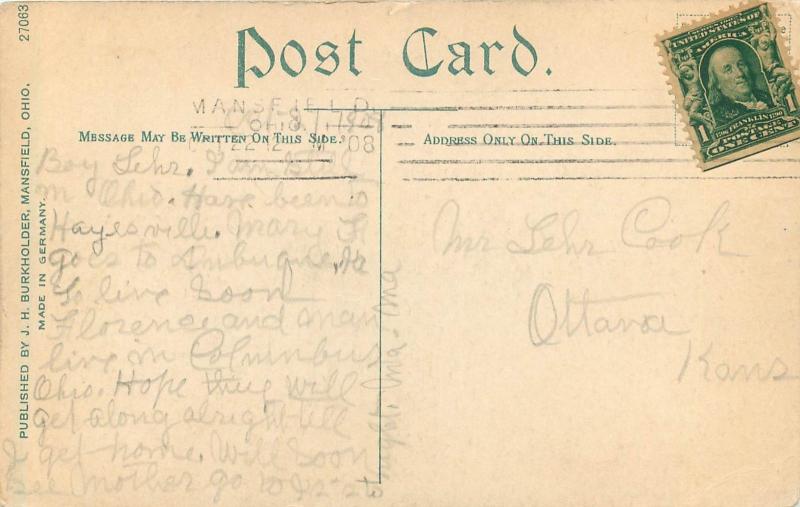 Post Card.
MANSFIELD
OHIO.
22 12 M '08
MESSAGE MAY BE WRITTEN ON THIS SIDE.
ADDRESS ONLY ON THIS SIDE.
UNITED STATES OF
AMERICA
1706 FRANKLIN 1790
1 POSTAGE 1
ONE CENT
27063
PUBLISHED BY J. H. BURKHOLDER, MANSFIELD, OHIO.
MADE IN GERMANY.
Boy Lehr. I am
in Ohio. Have been to
Hayesville. Mary
goes to
to live soon
Florence and
live in Columbus
Ohio. Hope thing will
get along alright till
I get home. Will soon
see Mother go to
Mr Lehr Cook
Ottawa
Kans